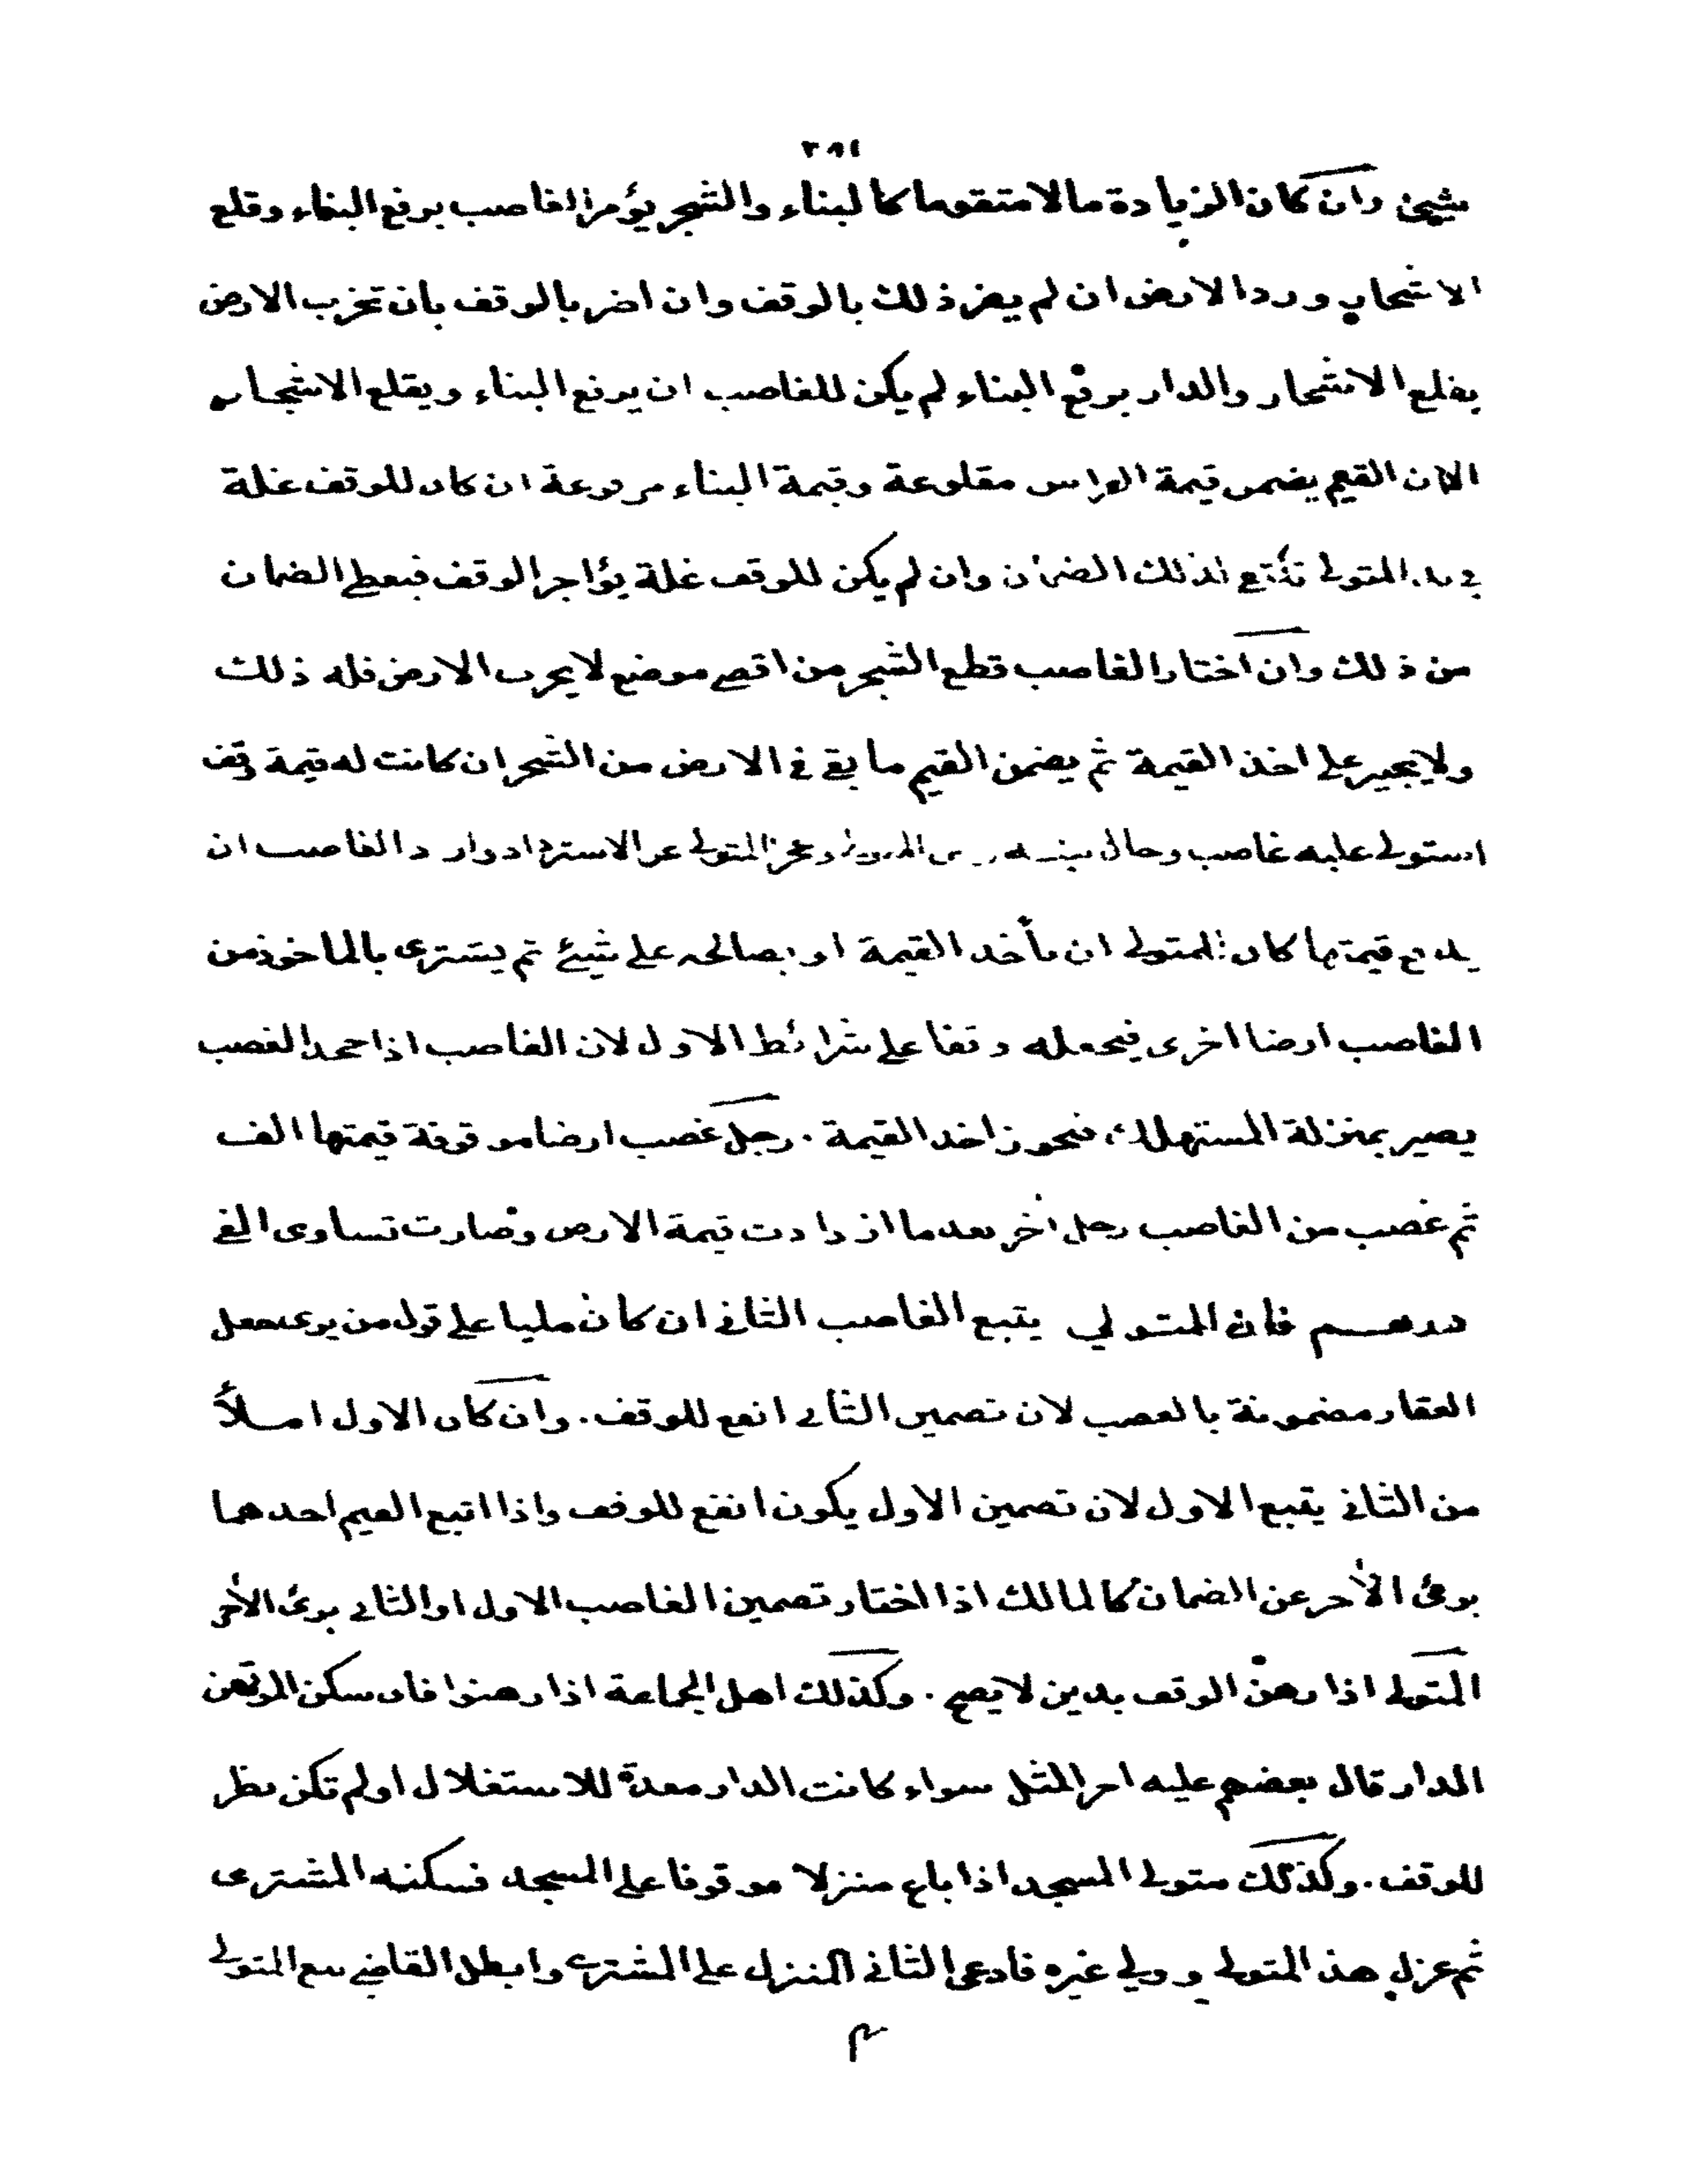 شيئ وان كان الزيادة مالا متقوما كالبناء والشجر يؤمر الغاصب برفع البناء وقلع
الاشجار ورد الارض ان لم يضر ذلك بالوقف وان اضر بالوقف بان تخرب الارض
بقلع الاشجار والدار برفع البناء لم يكن للغاصب ان يرفع البناء ويقلع الاشجار
الا ان القيم يضمن قيمة الغراس مقلوعة وقيمة البناء مرفوعة ان كان للوقف غلة
في يد المتولي لذلك الضمان وان لم يكن للوقف غلة يؤاجر الوقف فيعطي الضمان
من ذلك وان اختار الغاصب قطع الشجر من اقصى موضع لا يخرب الارض فله ذلك
ولا يجبر على اخذ القيمة ثم يضمن القيم ما بقي في الارض من الشجر ان كانت له قيمة وقف
استولى عليه غاصب وحال بينه وعجز المتولي عن الاسترداد واراد الغاصب ان
يدفع قيمتها كان للمتولي ان يأخذ القيمة او يصالحه على شيئ ثم يشترى بالماخوذ من
الغاصب ارضا اخرى فيجعله وقفا على شرائط الاول لان الغاصب اذا جحد الغصب
يصير بمنزلة المستهلك فيجوز اخذ القيمة . رجل غصب ارضا موقوفة قيمتها الف
ثم غصب من الغاصب رجل اخر بعد ما ازدادت قيمة الارض وصارت تساوى الفي
درهم فان المتولي يتبع الغاصب الثاني ان كان مليا على قول من يرى جعل
العقار مضمونة بالغصب لان تضمين الثاني انفع للوقف . وان كان الاول املأ
من الثاني يتبع الاول لان تضمين الاول يكون انفع للوقف واذا اتبع القيم احدهما
برئ الأخر عن الضمان كالمالك اذا اختار تضمين الغاصب الاول او الثاني برئ الأخر
المتولي اذا رهن الوقف بدين لا يصح . وكذلك اهل الجماعة اذا رهنوا فان سكن المرتهن
الدار قال بعضهم عليه اجر المثل سواء كانت الدار معدة للاستغلال او لم تكن نظر
للوقف . وكذلك متولي المسجد اذا باع منزلا موقوفا على المسجد فسكنه المشترى
ثم عزل هذا المتولي وولي غيره فادعى الثاني المنزل على المشترى وابطل القاضي بيع المتولي